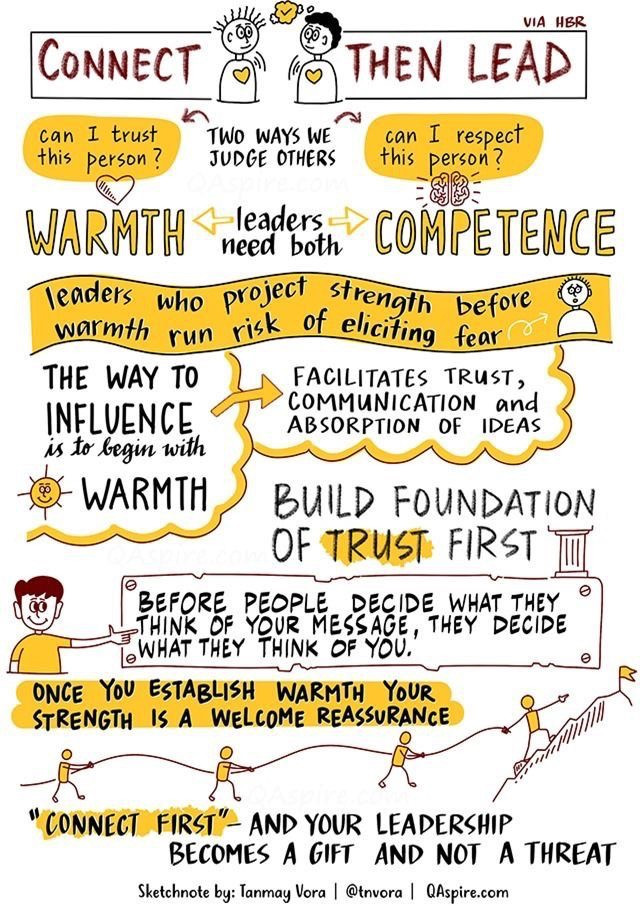 VIA HBR
CONNECT THEN LEAD
can I trust
this person?
TWO WAYS WE
JUDGE OTHERS
can I respect
this person?
QAspire.com
WARMTH
leaders
need both
COMPETENCE
leaders who project strength before
warmth run risk of eliciting fear
THE WAY TO
INFLUENCE
is to begin with
WARMTH
FACILITATES TRUST,
COMMUNICATION and
ABSORPTION OF IDEAS
QAspire.com
BUILD FOUNDATION
OF TRUST FIRST
BEFORE PEOPLE DECIDE WHAT THEY
THINK OF YOUR MESSAGE, THEY DECIDE
WHAT THEY THINK OF YOU.
ONCE YOU ESTABLISH WARMTH YOUR
STRENGTH IS A WELCOME REASSURANCE
QAspire.com
"CONNECT FIRST" - AND YOUR LEADERSHIP
BECOMES A GIFT AND NOT A THREAT
Sketchnote by: Tanmay Vora | @tnvora | QAspire.com